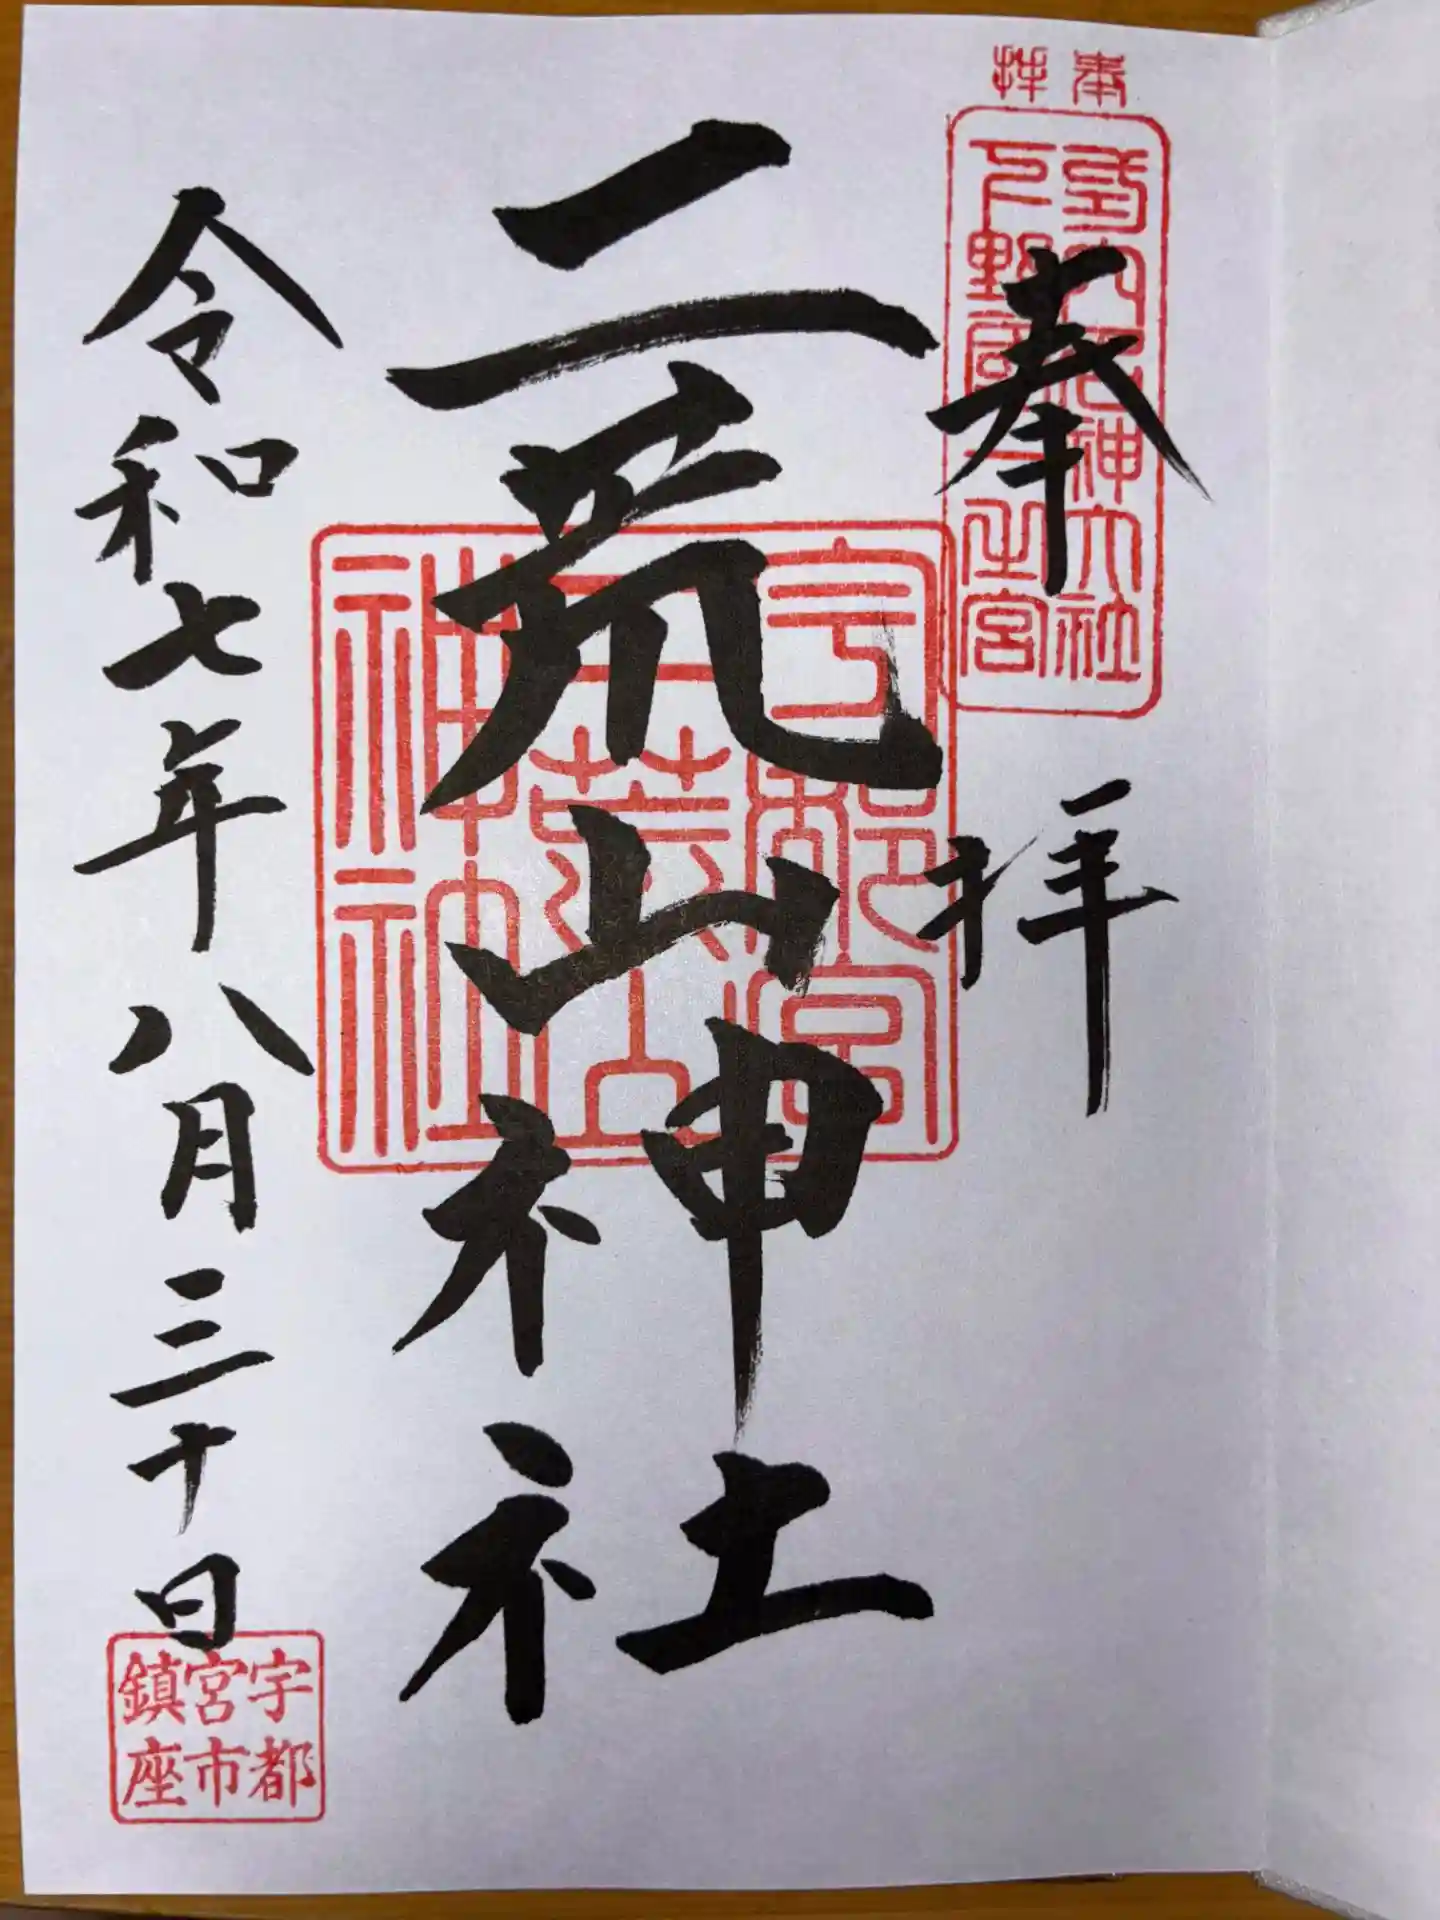 奉拝
延喜式内名神大社
下野國一之宮
奉拝
二荒山神社
宇都宮
二荒山
神社
令和七年八月三十日
宇都
宮市
鎮座